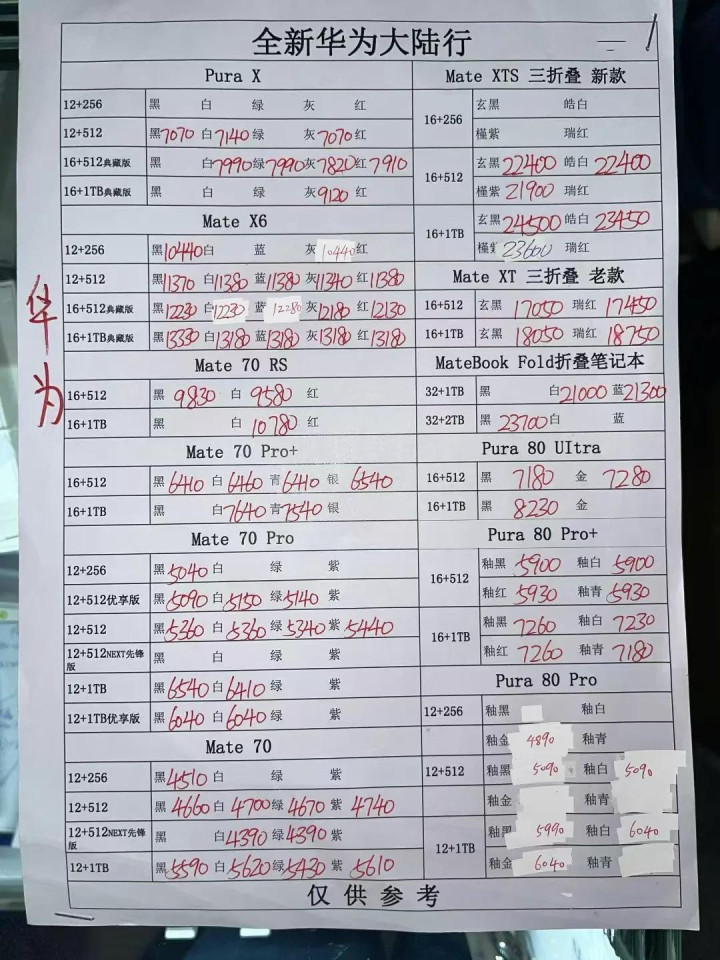 全新华为大陆行
华为
Pura X
12+256 黑 白 绿 灰 红
12+512 黑7070 白7140 绿 灰7070 红
16+512典藏版 黑 白7990 绿7990 灰7820 红7910
16+1TB典藏版 黑 白 绿 灰9120 红
Mate X6
12+256 黑10440 白 蓝 灰10440 红
12+512 黑11370 白11380 蓝11380 灰11340 红11380
16+512典藏版 黑12230 白12230 蓝12280 灰12180 红12130
16+1TB典藏版 黑13330 白13180 蓝13180 灰13180 红13180
Mate 70 RS
16+512 黑 9830 白 9580 红
16+1TB 黑 白 10780 红
Mate 70 Pro+
16+512 黑6410 白6460 青6410 银 6540
16+1TB 黑 白7640 青7540 银
Mate 70 Pro
12+256 黑5040 白 绿 紫
12+512优享版 黑5090 白5150 绿5140 紫
12+512 黑5360 白5360 绿5340 紫5440
12+512NEXT先锋版 黑 白 绿 紫
12+1TB 黑6540 白6410 绿 紫
12+1TB优享版 黑6040 白6040 绿 紫
Mate 70
12+256 黑4510 白 绿 紫
12+512 黑4660 白4700 绿4670 紫4740
12+512NEXT先锋版 黑 白4390 绿4390 紫
12+1TB 黑5590 白5620 绿5430 紫5610
Mate XTS 三折叠 新款
16+256 玄黑 皓白
槿紫 瑞红
16+512 玄黑22400 皓白22400
槿紫21900 瑞红
16+1TB 玄黑24500 皓白23450
槿紫23600 瑞红
Mate XT 三折叠 老款
16+512 玄黑 17050 瑞红 17450
16+1TB 玄黑 18050 瑞红 18750
MateBook Fold折叠笔记本
32+1TB 黑 白21000 蓝21300
32+2TB 黑 23700 白 蓝
Pura 80 UItra
16+512 黑 7180 金 7280
16+1TB 黑 8230 金
Pura 80 Pro+
16+512 釉黑 5900 釉白 5900
釉红 5930 釉青 5930
16+1TB 釉黑 7260 釉白 7230
釉红 7260 釉青 7180
Pura 80 Pro
12+256 釉黑 釉白
釉金 4890 釉青
12+512 釉黑 5090 釉白 5090
釉金 釉青
12+1TB 釉黑 5990 釉白 6040
釉金 6040 釉青
仅供参考